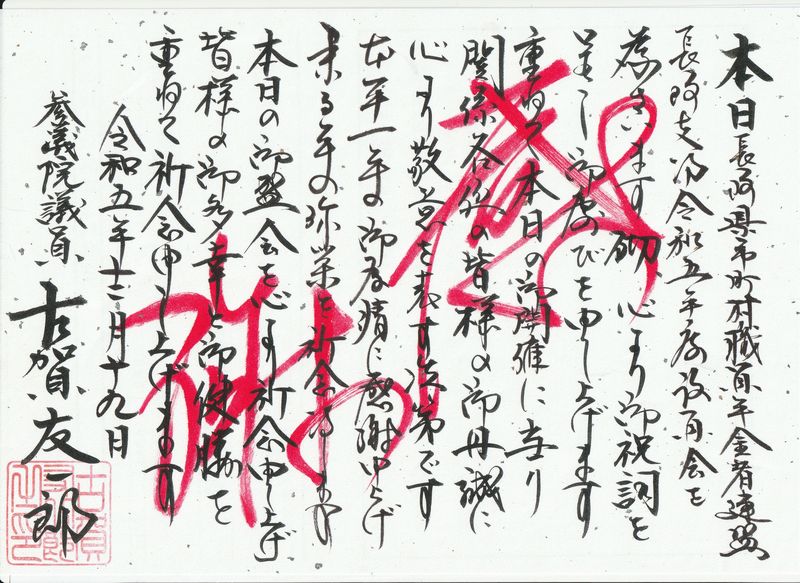 本日長崎県市町村職員年金者連盟
長崎支部令和五年度役員会を
なさいます砌、心より御祝詞を
呈し御慶びを申し上げます
重ねて本日の御開催に当り
関係各位の皆様の御丹誠に
心より敬意を表す次第です
本年一年の御厚情に感謝申上げ
来る年の弥栄を祈念致します
本日の御盛会を心より祈念申し上げ
皆様の御多幸と御健勝を
重ねて祈念申し上げます
令和五年十二月十九日
参議院議員 古賀友一郎
感謝